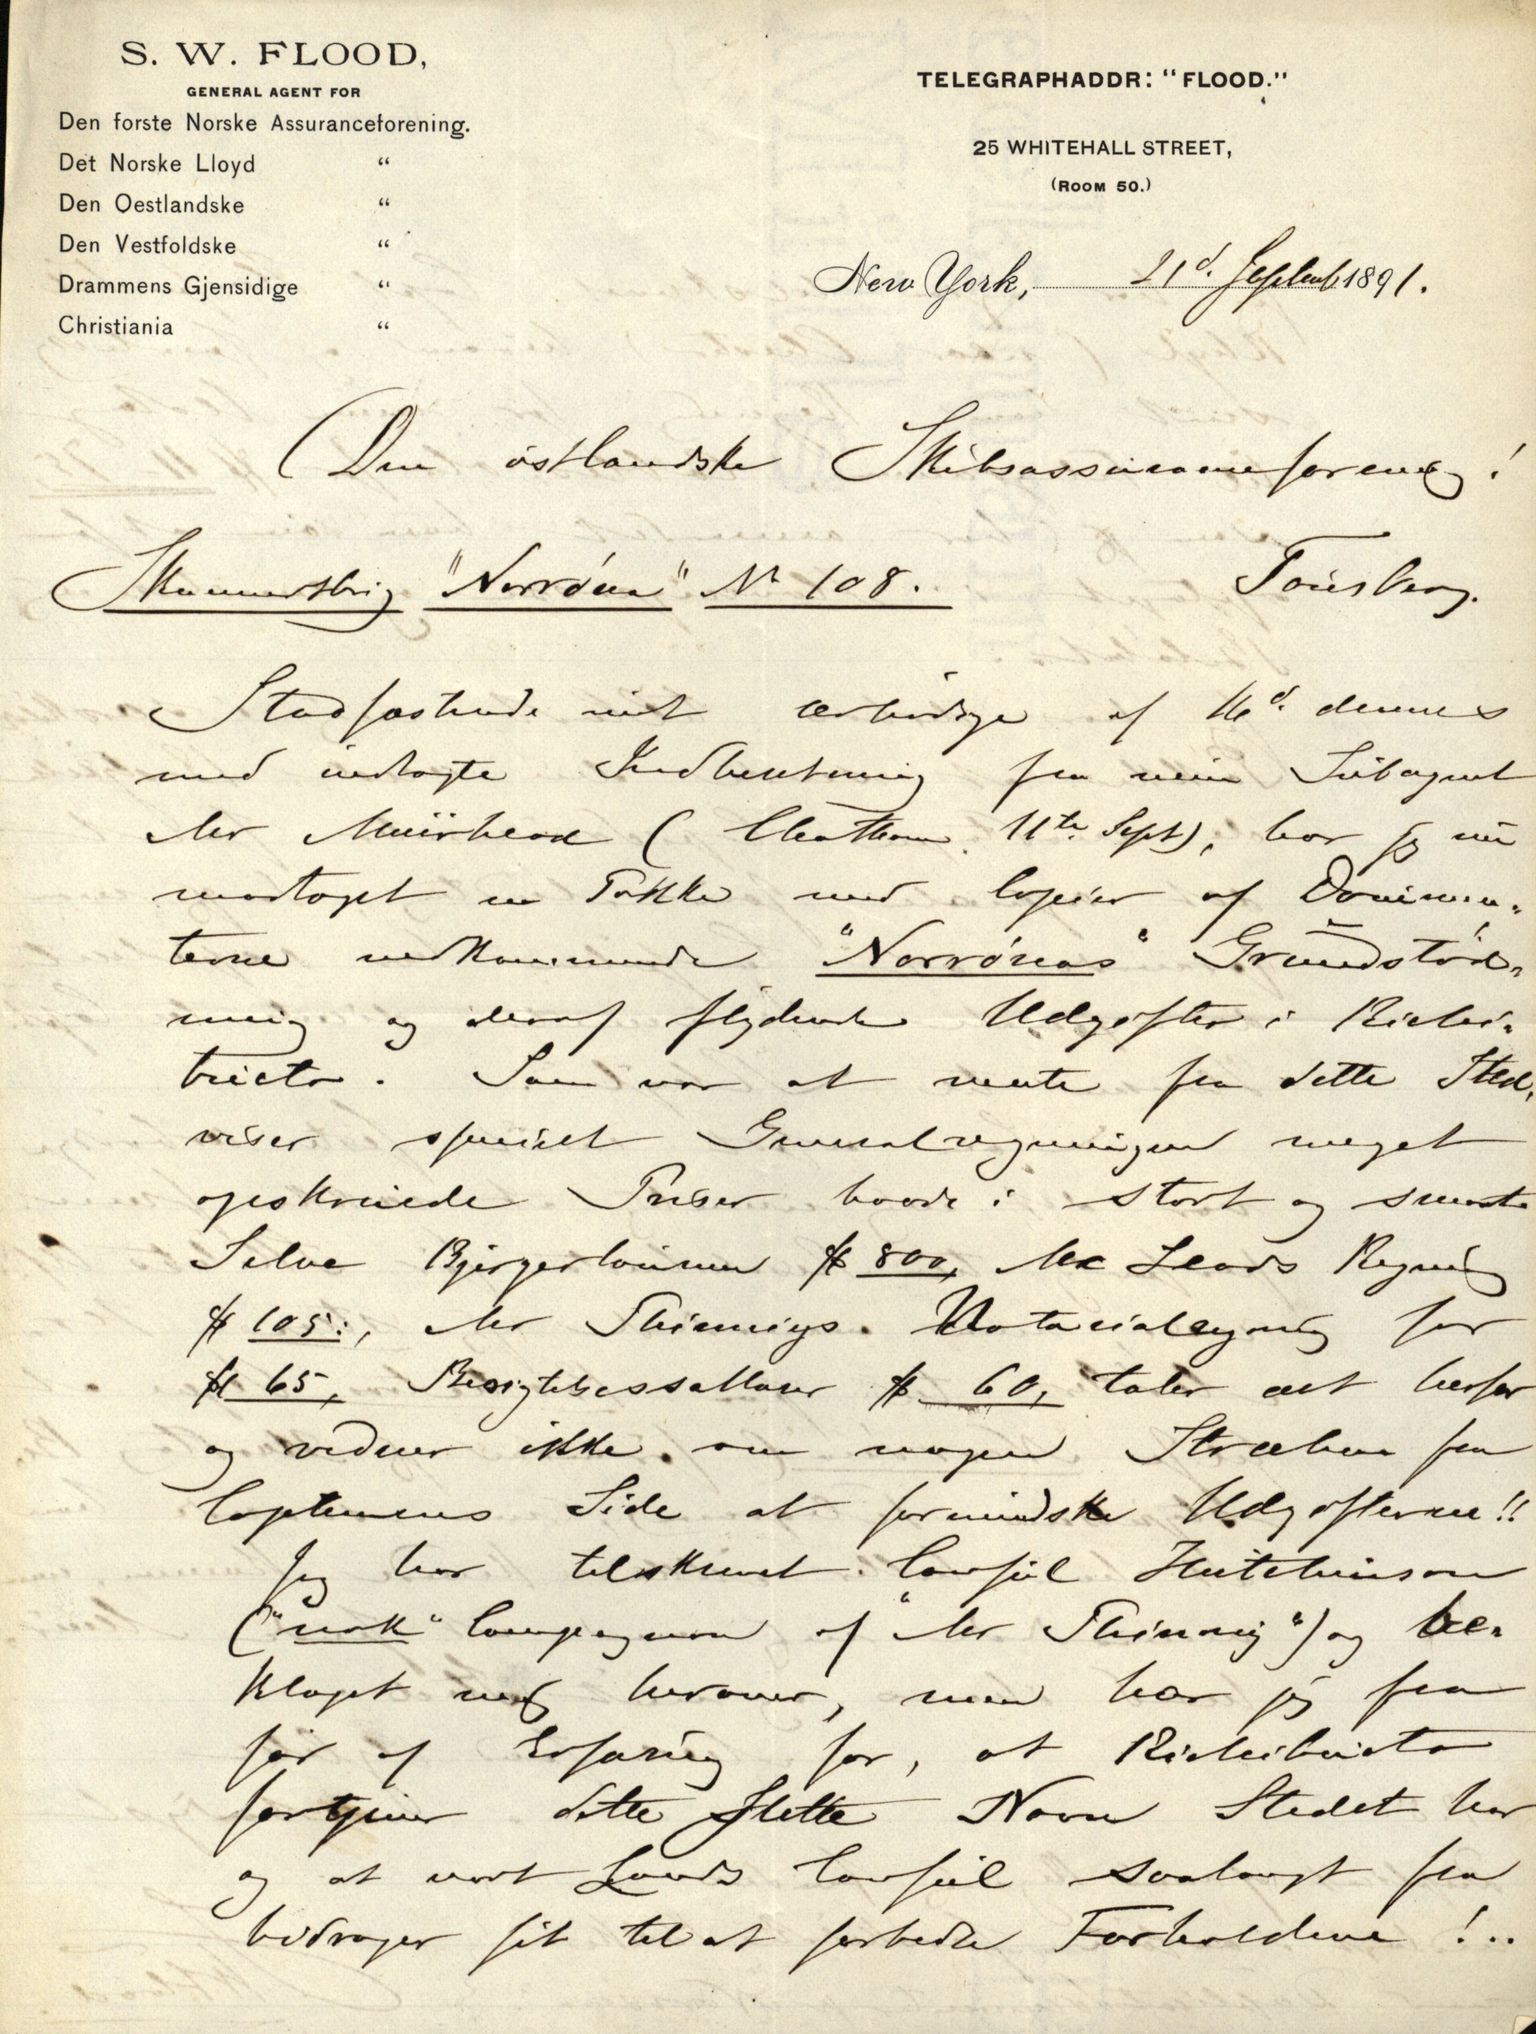 S. W. FLOOD,
GENERAL AGENT FOR
Den forste Norske Assuranceforening.
Det Norske Lloyd "
Den Oestlandske "
Den Vestfoldske "
Drammens Gjensidige "
Christiania "
TELEGRAPHADDR: "FLOOD."
25 WHITEHALL STREET,
(ROOM 50.)
New York, 21d. Septemb 1891.
Den østlandske Skibsassuranceforening!
Tønsberg.
Skonnertbrig "Norrøna" No 108.
Stadfæstende mit ærbødige af 16d. dennes
med indlagte Indberetning fra min Subagent
Mr Muirhead (Chatham 11th Sept), har jeg nu
modtaget en Pakke med Copier af Documen-
terne vedkommende "Norrønas" Grundstød-
ning og deraf flydende Udgifter i Richi-
bucto. Som var at vente fra dette Sted,
viser specielt Generalregningen meget
opskruede Priser baade i stort og smaat
Selve Bjergerlønnen $ 800, Mc Leods Regning
$ 105:, Mr Phinneys Notarialregning for
$ 65, Besigtelsessallarer $ 60, taler alt herfor
og vidner ikke om nogen Stræben fra
Captainens Side at formindske Udgifterne!!
Jeg har tilskrevet Consul Hutchinson
("nok" Compagnon af "Mr Phinney") og be-
klaget mig herover, men har jeg fra
før af Erfaring for, at Richibucto
fortjener dette slette Navn Stedet har
og at vort Lands Consul saalangt fra
bidrager sit til at forbedre Forholdene!..